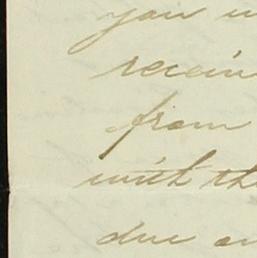 you
receiv
from
with th
due